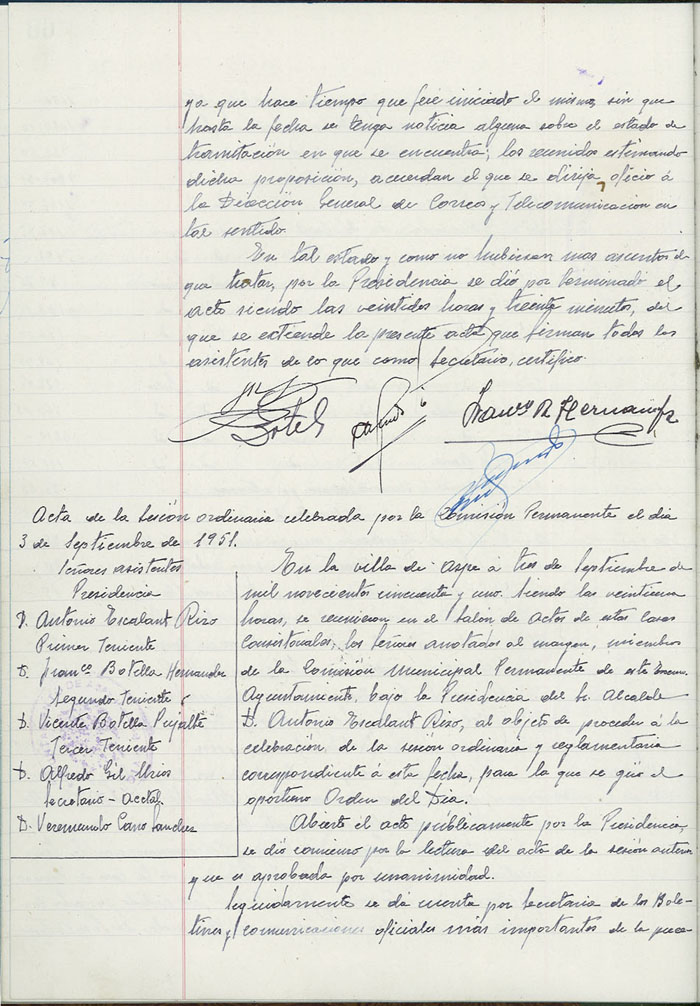 ya que hace tiempo que fué iniciado el mismo, sin que
hasta la fecha se tenga noticia alguna sobre el estado de
tramitación en que se encuentra; los reunidos estimando
dicha proposición, acuerdan el que se dirija oficio á
la Dirección General de Correos y Telecomunicacion en
tal sentido.
En tal estado y como no hubieran mas asuntos de
que tratar, por la Presidencia se dió por terminado el
acto siendo las veintidos horas y treinta minutos, del
que se extiende la presente acta que firman todos los
asistentes de lo que como Secretario, certifico.
Botella
Franco B. Hernandez
Acta de la Sesión ordinaria celebrada por la Comisión Permanente el dia
3 de Septiembre de 1951.
Señores asistentes
Presidencia
D. Antonio Escalant Rizo
Primer Teniente
D. Franco. Botella Hernandez
Segundo Teniente
D. Vicente Botella Pujalte
Tercer Teniente
D. Alfredo Gil Mrios
Secretario - Acctal.
D. Veremundo Cano Sanchez
En la villa de Aspe á tres de Septiembre de
mil novecientos cincuenta y uno. Siendo las veintiuna
horas, se reunieron en el Salon de Actos de estas Casas
Consistoriales, los señores anotados al margen, miembros
de la Comisión Municipal Permanente de este Excmo.
Ayuntamiento, bajo la Presidencia del Sr. Alcalde
D. Antonio Escalant Rizo, al objeto de proceder á la
celebración de la sesión ordinaria y reglamentaria
correspondiente á esta fecha, para la que se giró el
oportuno Orden del Dia.
Abierto el acto públicamente por la Presidencia,
se dió comienzo por la lectura del acta de la sesión anterior
que es aprobada por unanimidad.
Seguidamente se dá cuenta por Secretaria de los Bole-
tines y comunicaciones oficiales más importantes de la prece-